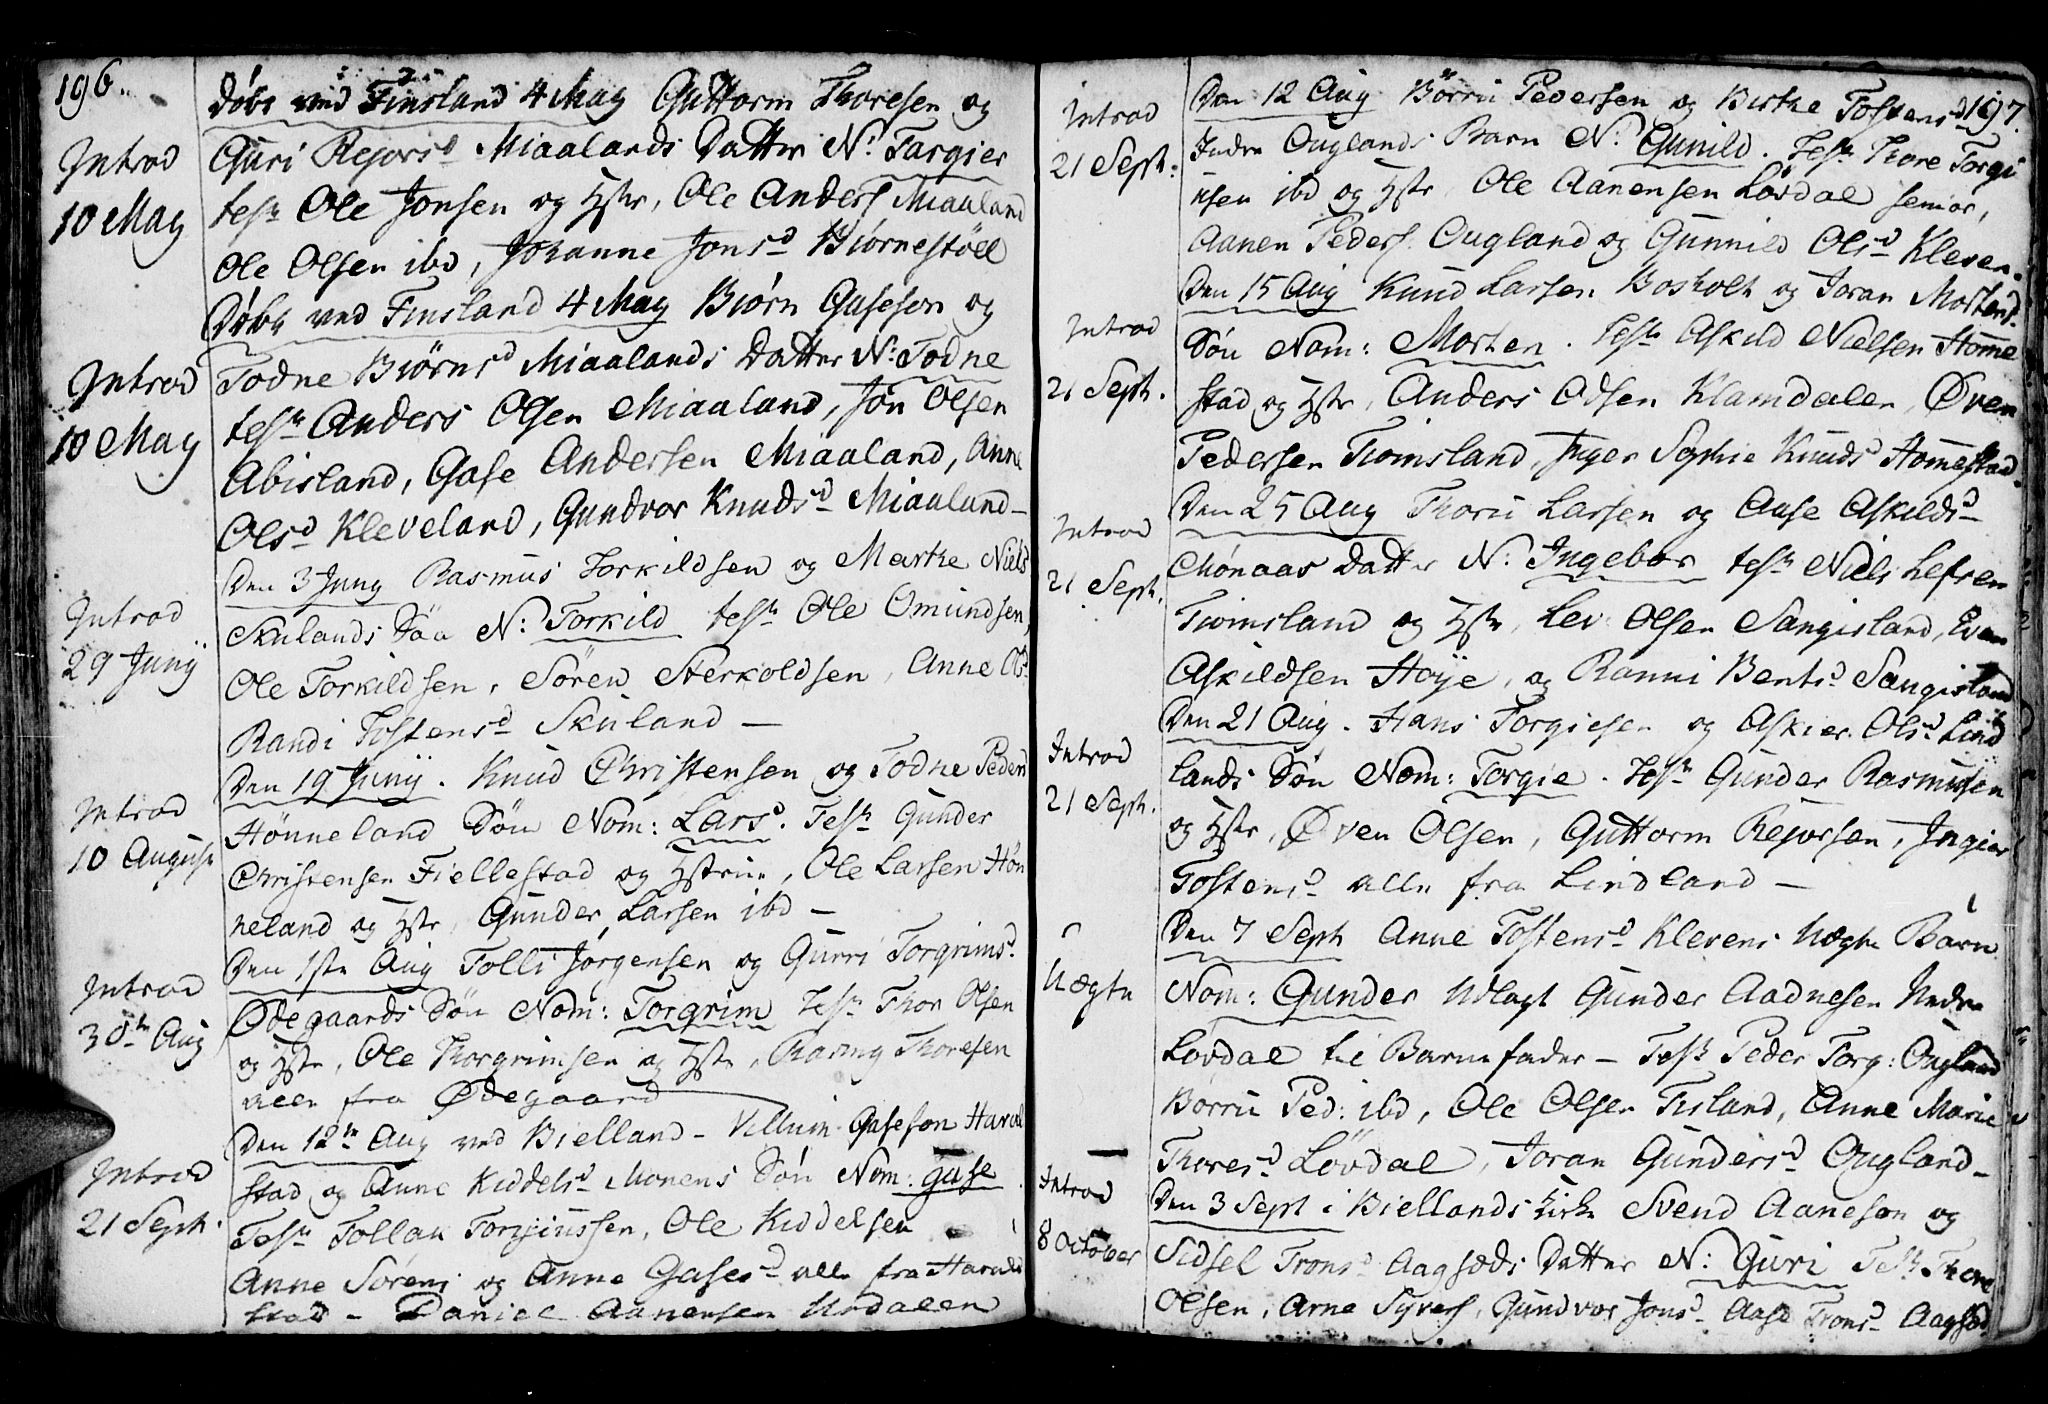 196.
Døbt ved Finsland 4 May Guttorm Thoresen og
Guri Rejorsd Miaalands Datter N: Targier
Introd
10 May
test Ole Jonsen og Hstr, Ole Anders Miaaland
Ole Olsen ibd, Johanne Jonsd Biørnestøll
Døbt ved Finsland 4 May Biørn Gaseson og
Introd
10 May
Todne Biørnsd Miaalands Datter N: Todne
test Anders Olsen Miaaland, Jon Olsen
Abisland, Gase Andersen Miaaland, Anne
Olsd Kleveland, Gundvor Knudsd Miaaland
Den 3 Juny Rasmus Torkildsen og Marthe Niels
Introd
29 Junij
Skulands Søn N: Torkild test Ole Omundsen,
Ole Torkildsen, Søren Sterkoldsen, Anne Olsd
Randi Tostensd Skuland —
Den 19 Junij. Knud Christensen og Todne Peders
Introd
10 August
Hønneland Søn Nom: Lars. Test Gunder
Christensen Fiellestad og Hstrue, Ole Larsen Høn
neland og Hstr, Gunder Larsen ibd —
Den 1ste Aug Tolli Jørgensen og Gurri Torgrimsd
Introd
30te Aug
Ødegaards Søn Nom: Torgrim Test Thor Olsen
og Hstr, Ole Thorgrimsen og Hstr, Rasmg Thoresen
alle fra Ødegaard
Den 12te Aug ved Bielland — Villum Gaseson Haral
Introd
21 Sept.
stad og Anne Kiddelsd Monens Søn Nom: Gase
Test Tollau Torgiussen, Ole Kiddelsen
Anne Sørens og Anne Gasesd alle fra Harald
stad — Daniel Aanensen Urdalen
197.
Introd
21 Sept:
Den 12 Aug Børru Pedersen og Birthe Tostensd
Indre Ouglands Barn N: Gunild. Test Thore Torgi
usen ibd og Hstr, Ole Aanensen Løvdal senior,
Aanen Peders. Ougland og Gunnild Olsd Kleven.
Den 15 Aug Knud Larsen Bosholt og Joran Mortens
Introd
21 Sept.
Søn Nom: Morten. Test Askild Nielsen Home
stad og Hstr, Anders Odsen Klamdalen, Øven
Pedersen Twinsland, Inger Sophie Knuds Homestad.
Den 25 Aug Thoru Larsen og Aase Askildsd
Introd
21 Sept.
Mønaas Datter N: Ingebor test Niels Lefsen
Twinsland og Hstr, Lev Olsen Sangisland, Even
Askildsen Høye, og Ranni Bentsd Sangisland
Den 21 Aug. Hans Torgiesen og Askier Olsd Lind
Introd
21 Sept.
lands Søn Nom: Torgie. Test Gunder Rasmusen
og Hstr, Øven Olsen, Guttorm Rejorsen, Ingier
Tostensd alle fra Lindland —
Den 7 Sept Anne Tostensd Klevens Uægte Barn
Uægte
Nom: Gunder Udlagt Gunder Aadnesen Nedre
Løvdal til Barnefader — Test Peder Torg: Ougland
Børru Ped: ibd, Ole Olsen Fisland, Anne Marie
Thoresd Løvdal, Joran Gundersd Ougland —
Introd
8 October
Den 3 Sept i Biellands Kirke Svend Aaneson og
Sidsel Tronsd Aagsæds Datter N: Guri Test Thore
Olsen, Arne Syvers, Gundvor Jonsd Aase Tronsd Aagsæd